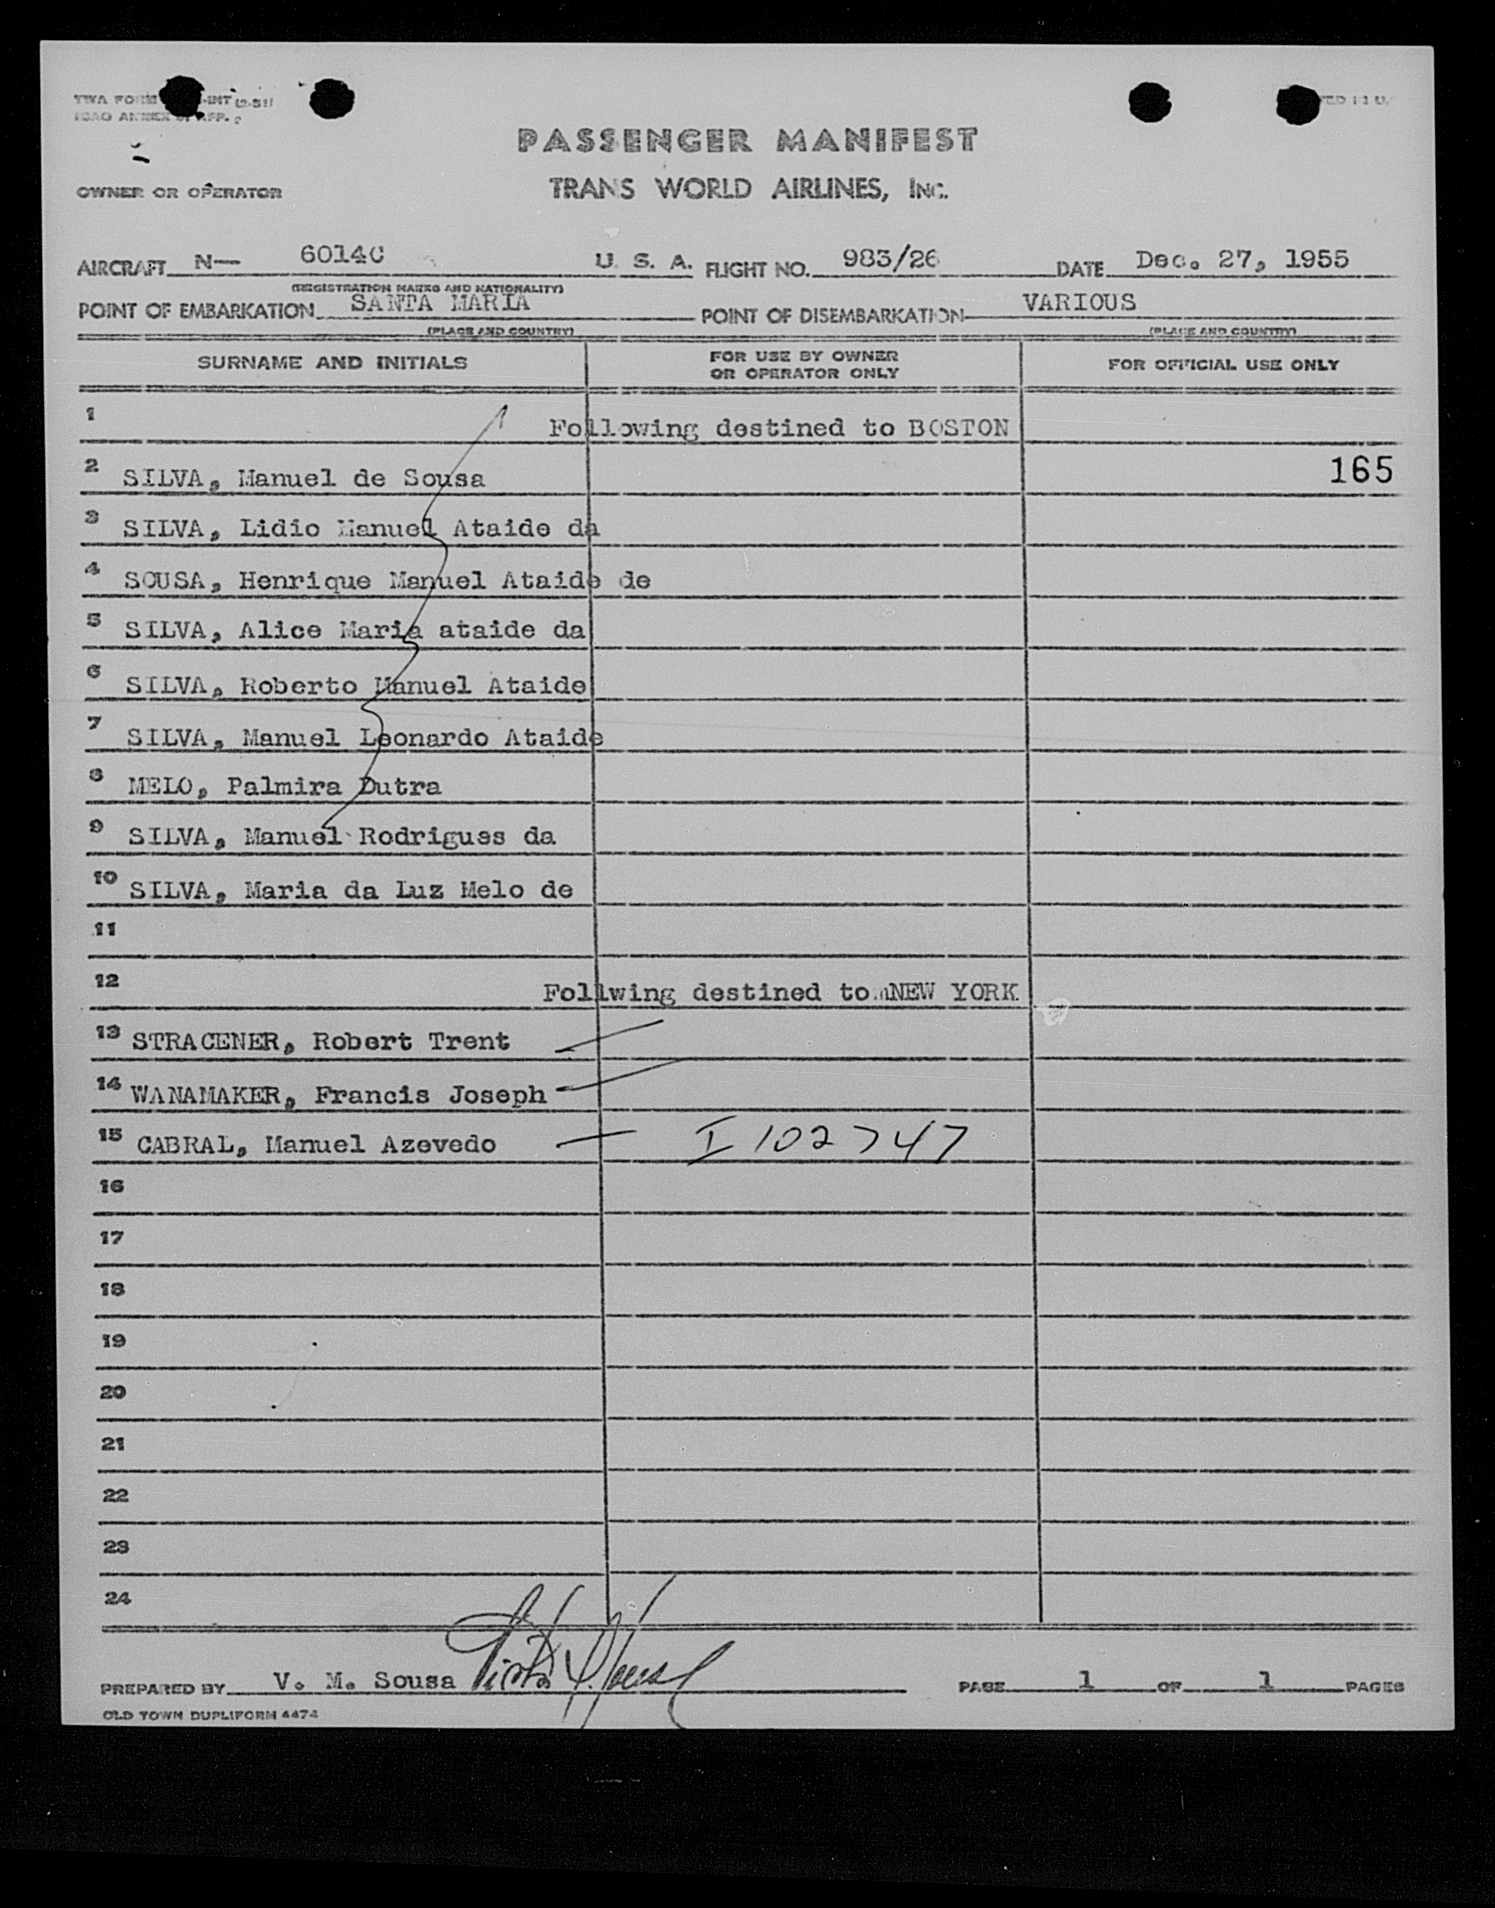 TWA FORM -INT (2-51)
ICAO ANNEX 9, APP. 2
PASSENGER MANIFEST
OWNER OR OPERATOR TRANS WORLD AIRLINES, INC.
AIRCRAFT N— 6014C U. S. A. FLIGHT NO. 983/26 DATE Dec. 27, 1955
(REGISTRATION MARKS AND NATIONALITY)
POINT OF EMBARKATION SANTA MARIA POINT OF DISEMBARKATION VARIOUS
(PLACE AND COUNTRY) (PLACE AND COUNTRY)
SURNAME AND INITIALS FOR USE BY OWNER OR OPERATOR ONLY FOR OFFICIAL USE ONLY
1 Following destined to BOSTON
2 SILVA, Manuel de Sousa 165
3 SILVA, Lidio Manuel Ataide da
4 SOUSA, Henrique Manuel Ataide de
5 SILVA, Alice Maria ataide da
6 SILVA, Roberto Manuel Ataide
7 SILVA, Manuel Leonardo Ataide
8 MELO, Palmira Dutra
9 SILVA, Manuel Rodrigues da
10 SILVA, Maria da Luz Melo de
11
12 Follwing destined to NEW YORK
13 STRACENER, Robert Trent
14 WANAMAKER, Francis Joseph
15 CABRAL, Manuel Azevedo — I 102747
16
17
18
19
20
21
22
23
24
PREPARED BY V. M. Sousa PAGE 1 OF 1 PAGES
OLD TOWN DUPLIFORM 4474